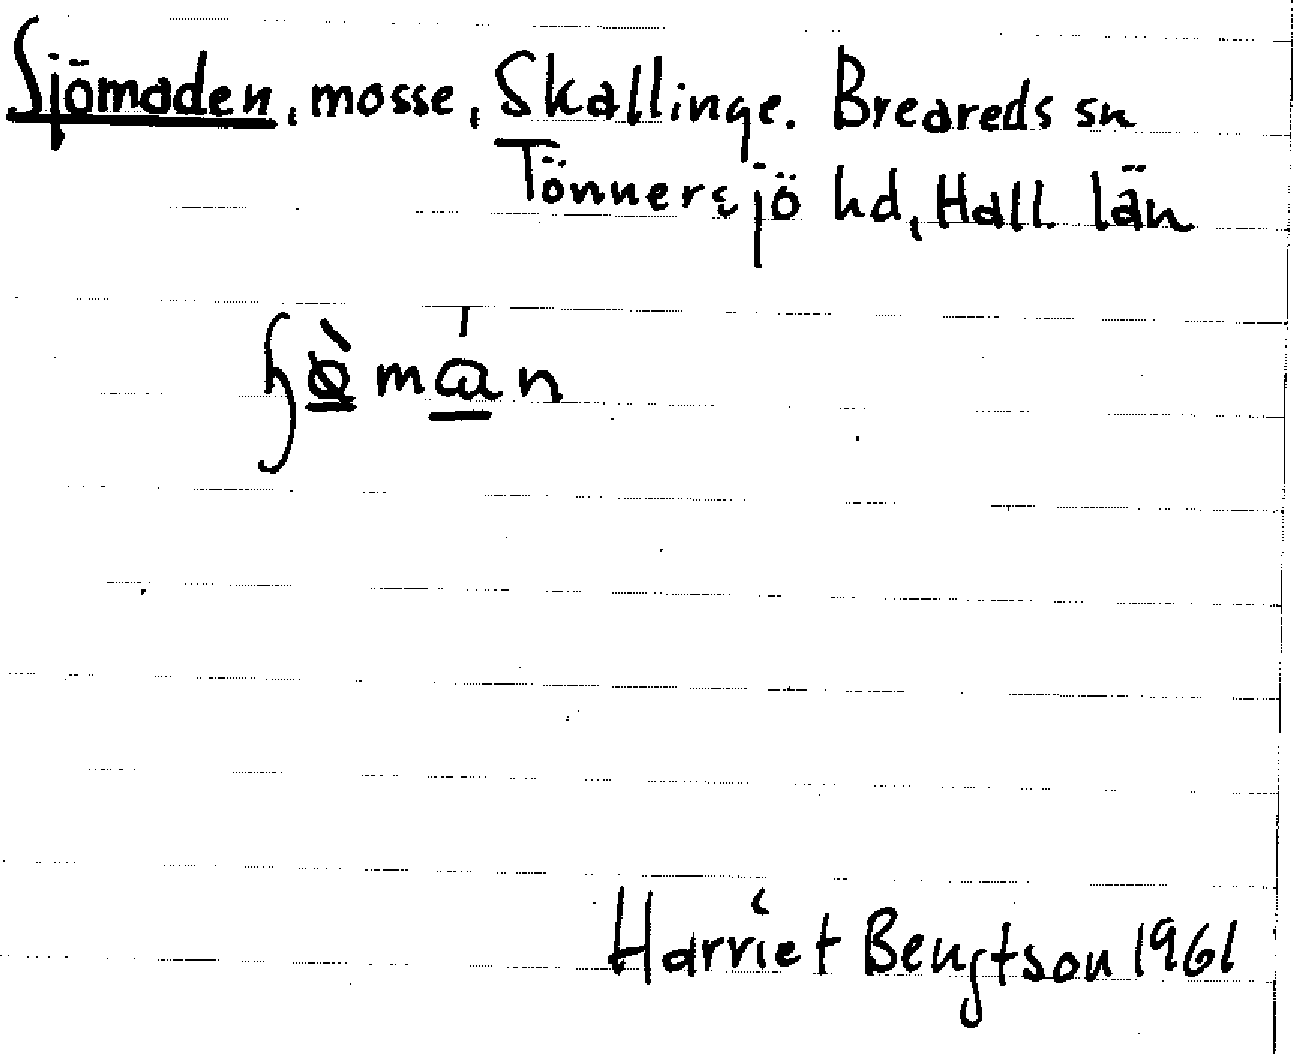 Sjömaden, mosse, Skallinge. Breareds sn
Tönnersjö hd, Hall. län
Harriet Bengtson 1961